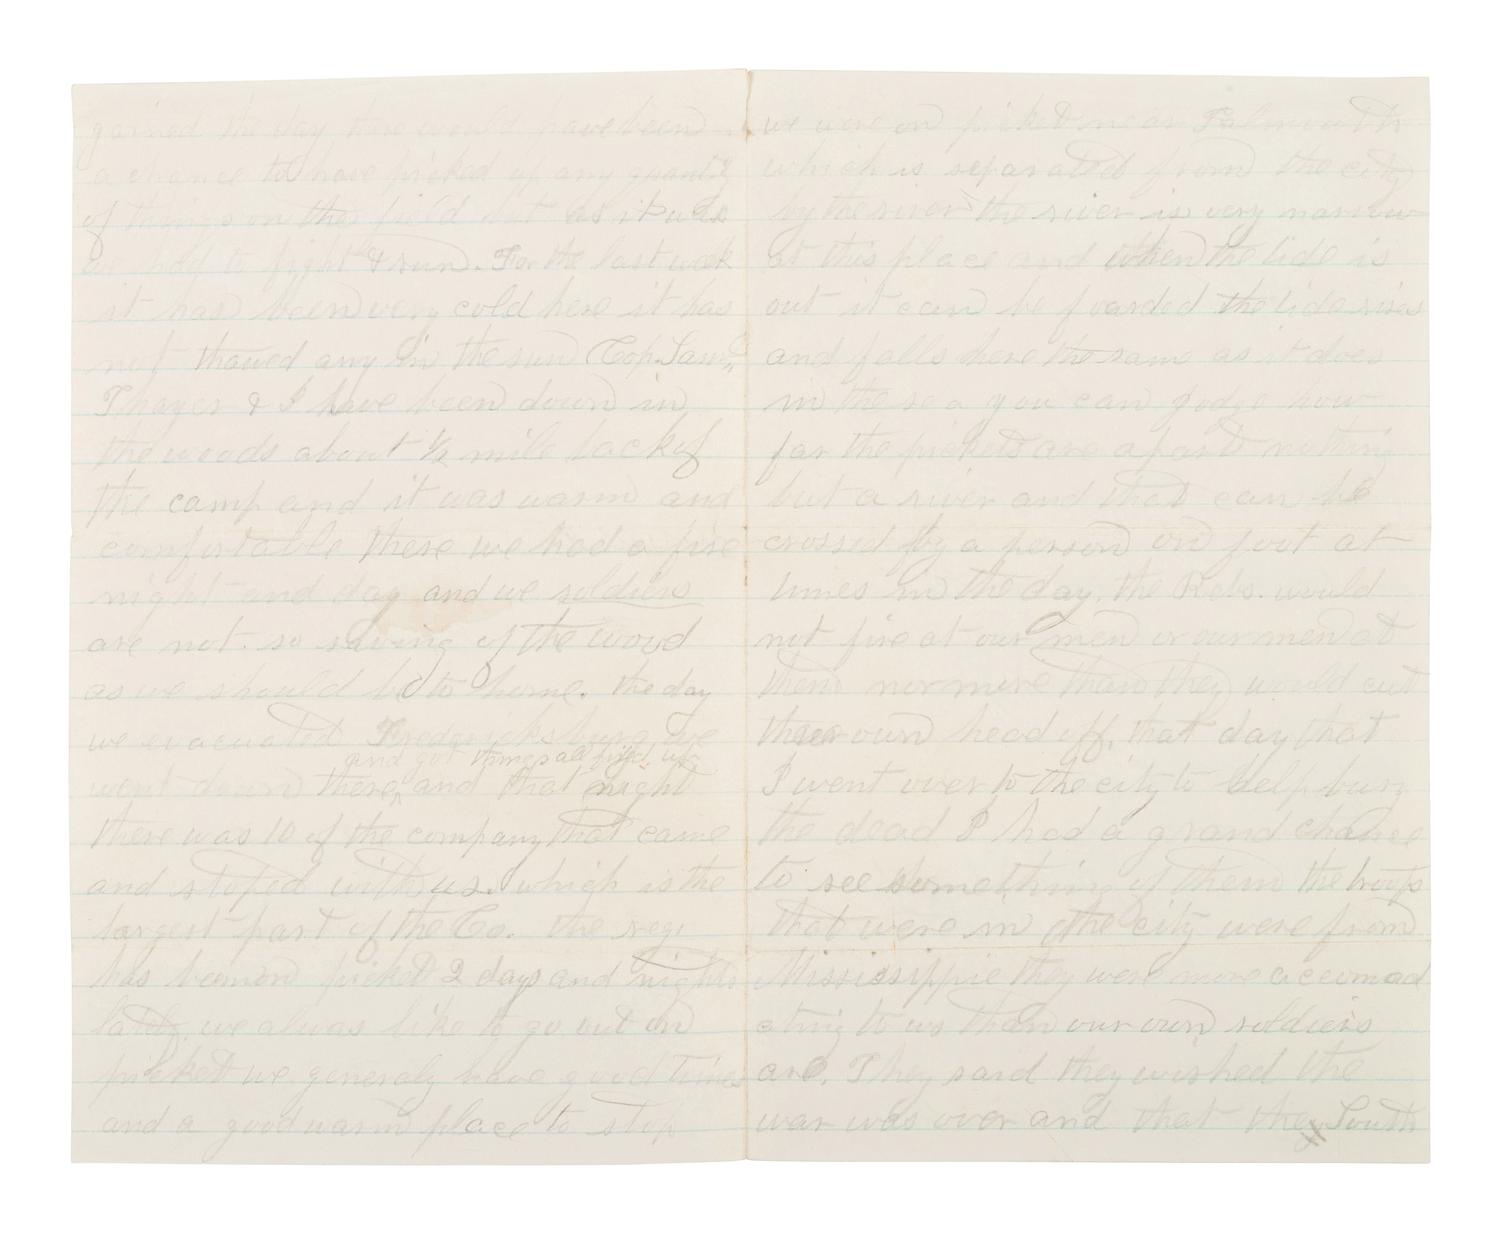 gained the day there would have been
a chance to have picked up any quantity
of things on the field but as it was
we had to fight & run. For the last week
it has been very cold here it has
not thawed any in the sun Cop. Sam.
Thayer & I have been down in
the woods about ½ mile back of
the camp and it was warm and
comfortable there we had a fire
night and day and we soldiers
are not so saving of the wood
as we should be to home. the day
we evacuated Fredericksburg we
and got things all fixed up
went down there, and that night
there was 10 of the company that came
and stoped with us. which is the
largest part of the Co. the regt
has been on picket 2 days and nights
lately. we alwas like to go out on
picket we generaly have good times
and a good warm place to stop
we were on picket near Falmouth
which is separated from the city
by the river the river is very narrow
at this place and when the tide is
out it can be foarded the tide rises
and falls here the same as it does
in the sea you can godge how
far the pickets are apart nothing
but a river and that can be
crossed by a person on foot at
times in the day. the Rebs. would
not fire at our men or our men at
them nor more than they would cut
their own head off, that day that
I went over to the city to help bury
the dead I had a grand chance
to see something of them the troops
that were in the city were from
Mississippie they were more accomad
ating to us than our own soldiers
are. They said they wished the
war was over and that the South